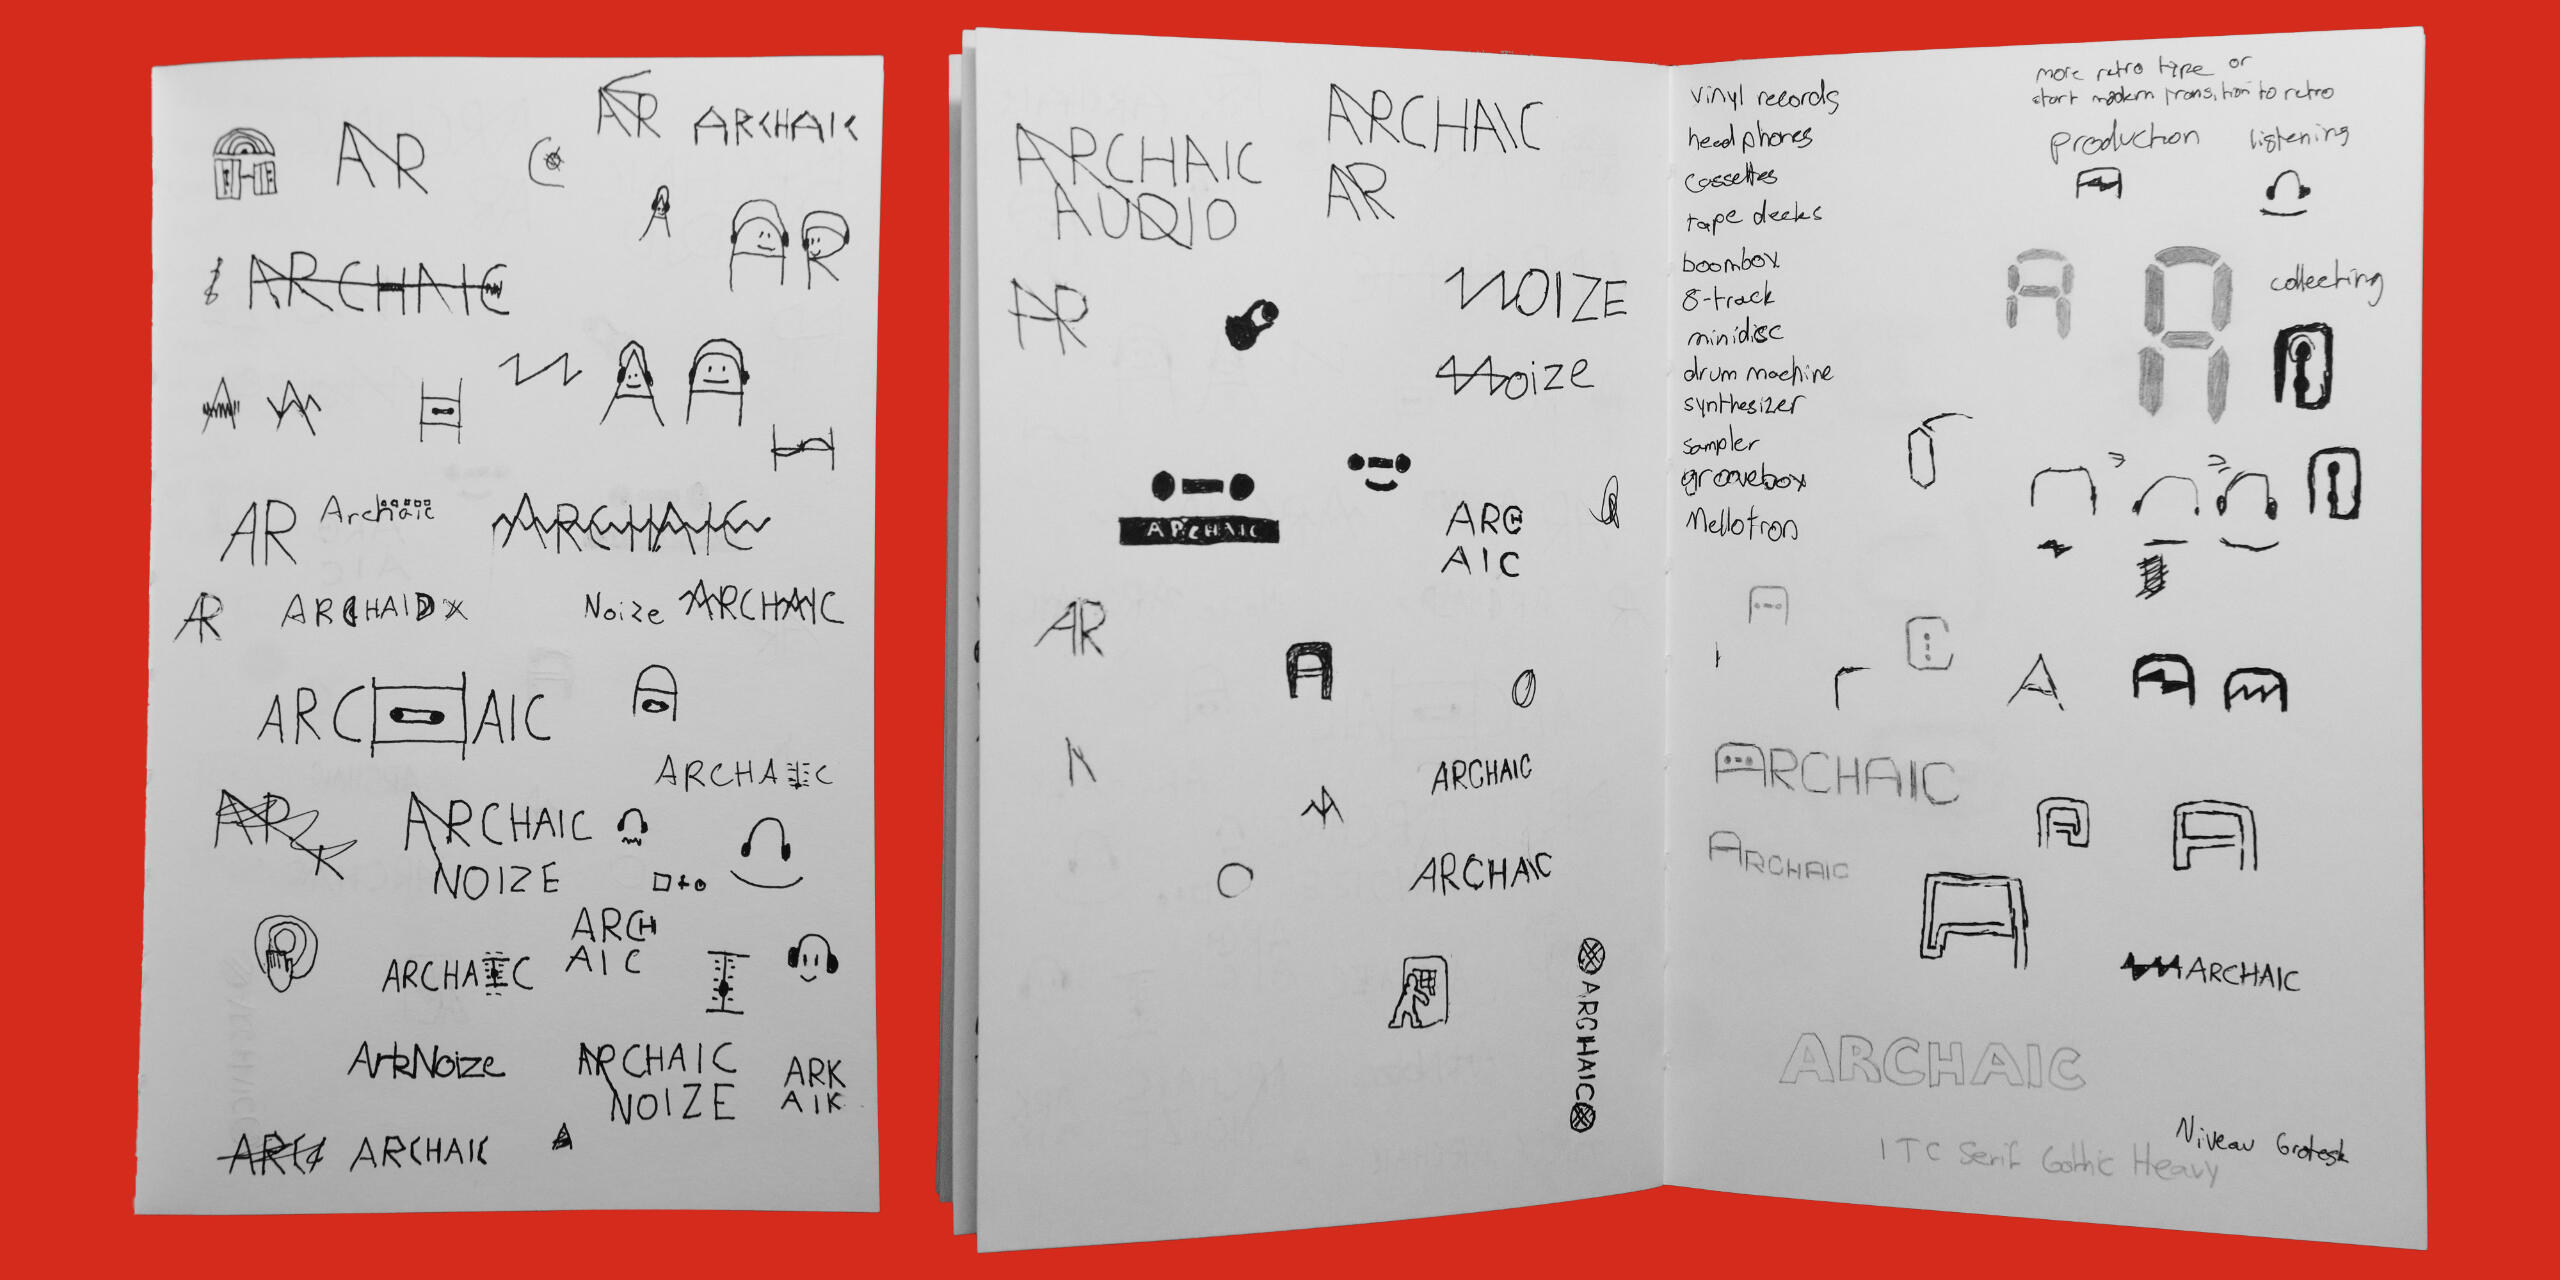 AR
AR
ARCHAIC
AR
ARCHAIC
A
A
AR
Archaic
ARCHAIC
AR
ARCHAIDX
Noize ARCHAIC
ARCHAIC
ARCHAIC
AR
ARCHAIC
NOIZE
ARCHAIC
ARCH
AIC
ArkNoize
ARCHAIC
NOIZE
ARK
AIK
ARC
ARCHAIC
ARCHAIC
AUDIO
ARCHAIC
AR
AR
NOIZE
Noize
ARCHAIC
ARCH
AIC
AR
A
ARCHAIC
ARCHAIC
ARCHAIC
vinyl records
headphones
cassettes
tape decks
boombox
8-track
minidisc
drum machine
synthesizer
sampler
groovebox
Mellotron
more retro type or
start modern transition to retro
production
listening
collecting
A
A
A
ARCHAIC
ARCHAIC
ARCHAIC
ARCHAIC
Niveau Grotesk
ITC Serif Gothic Heavy